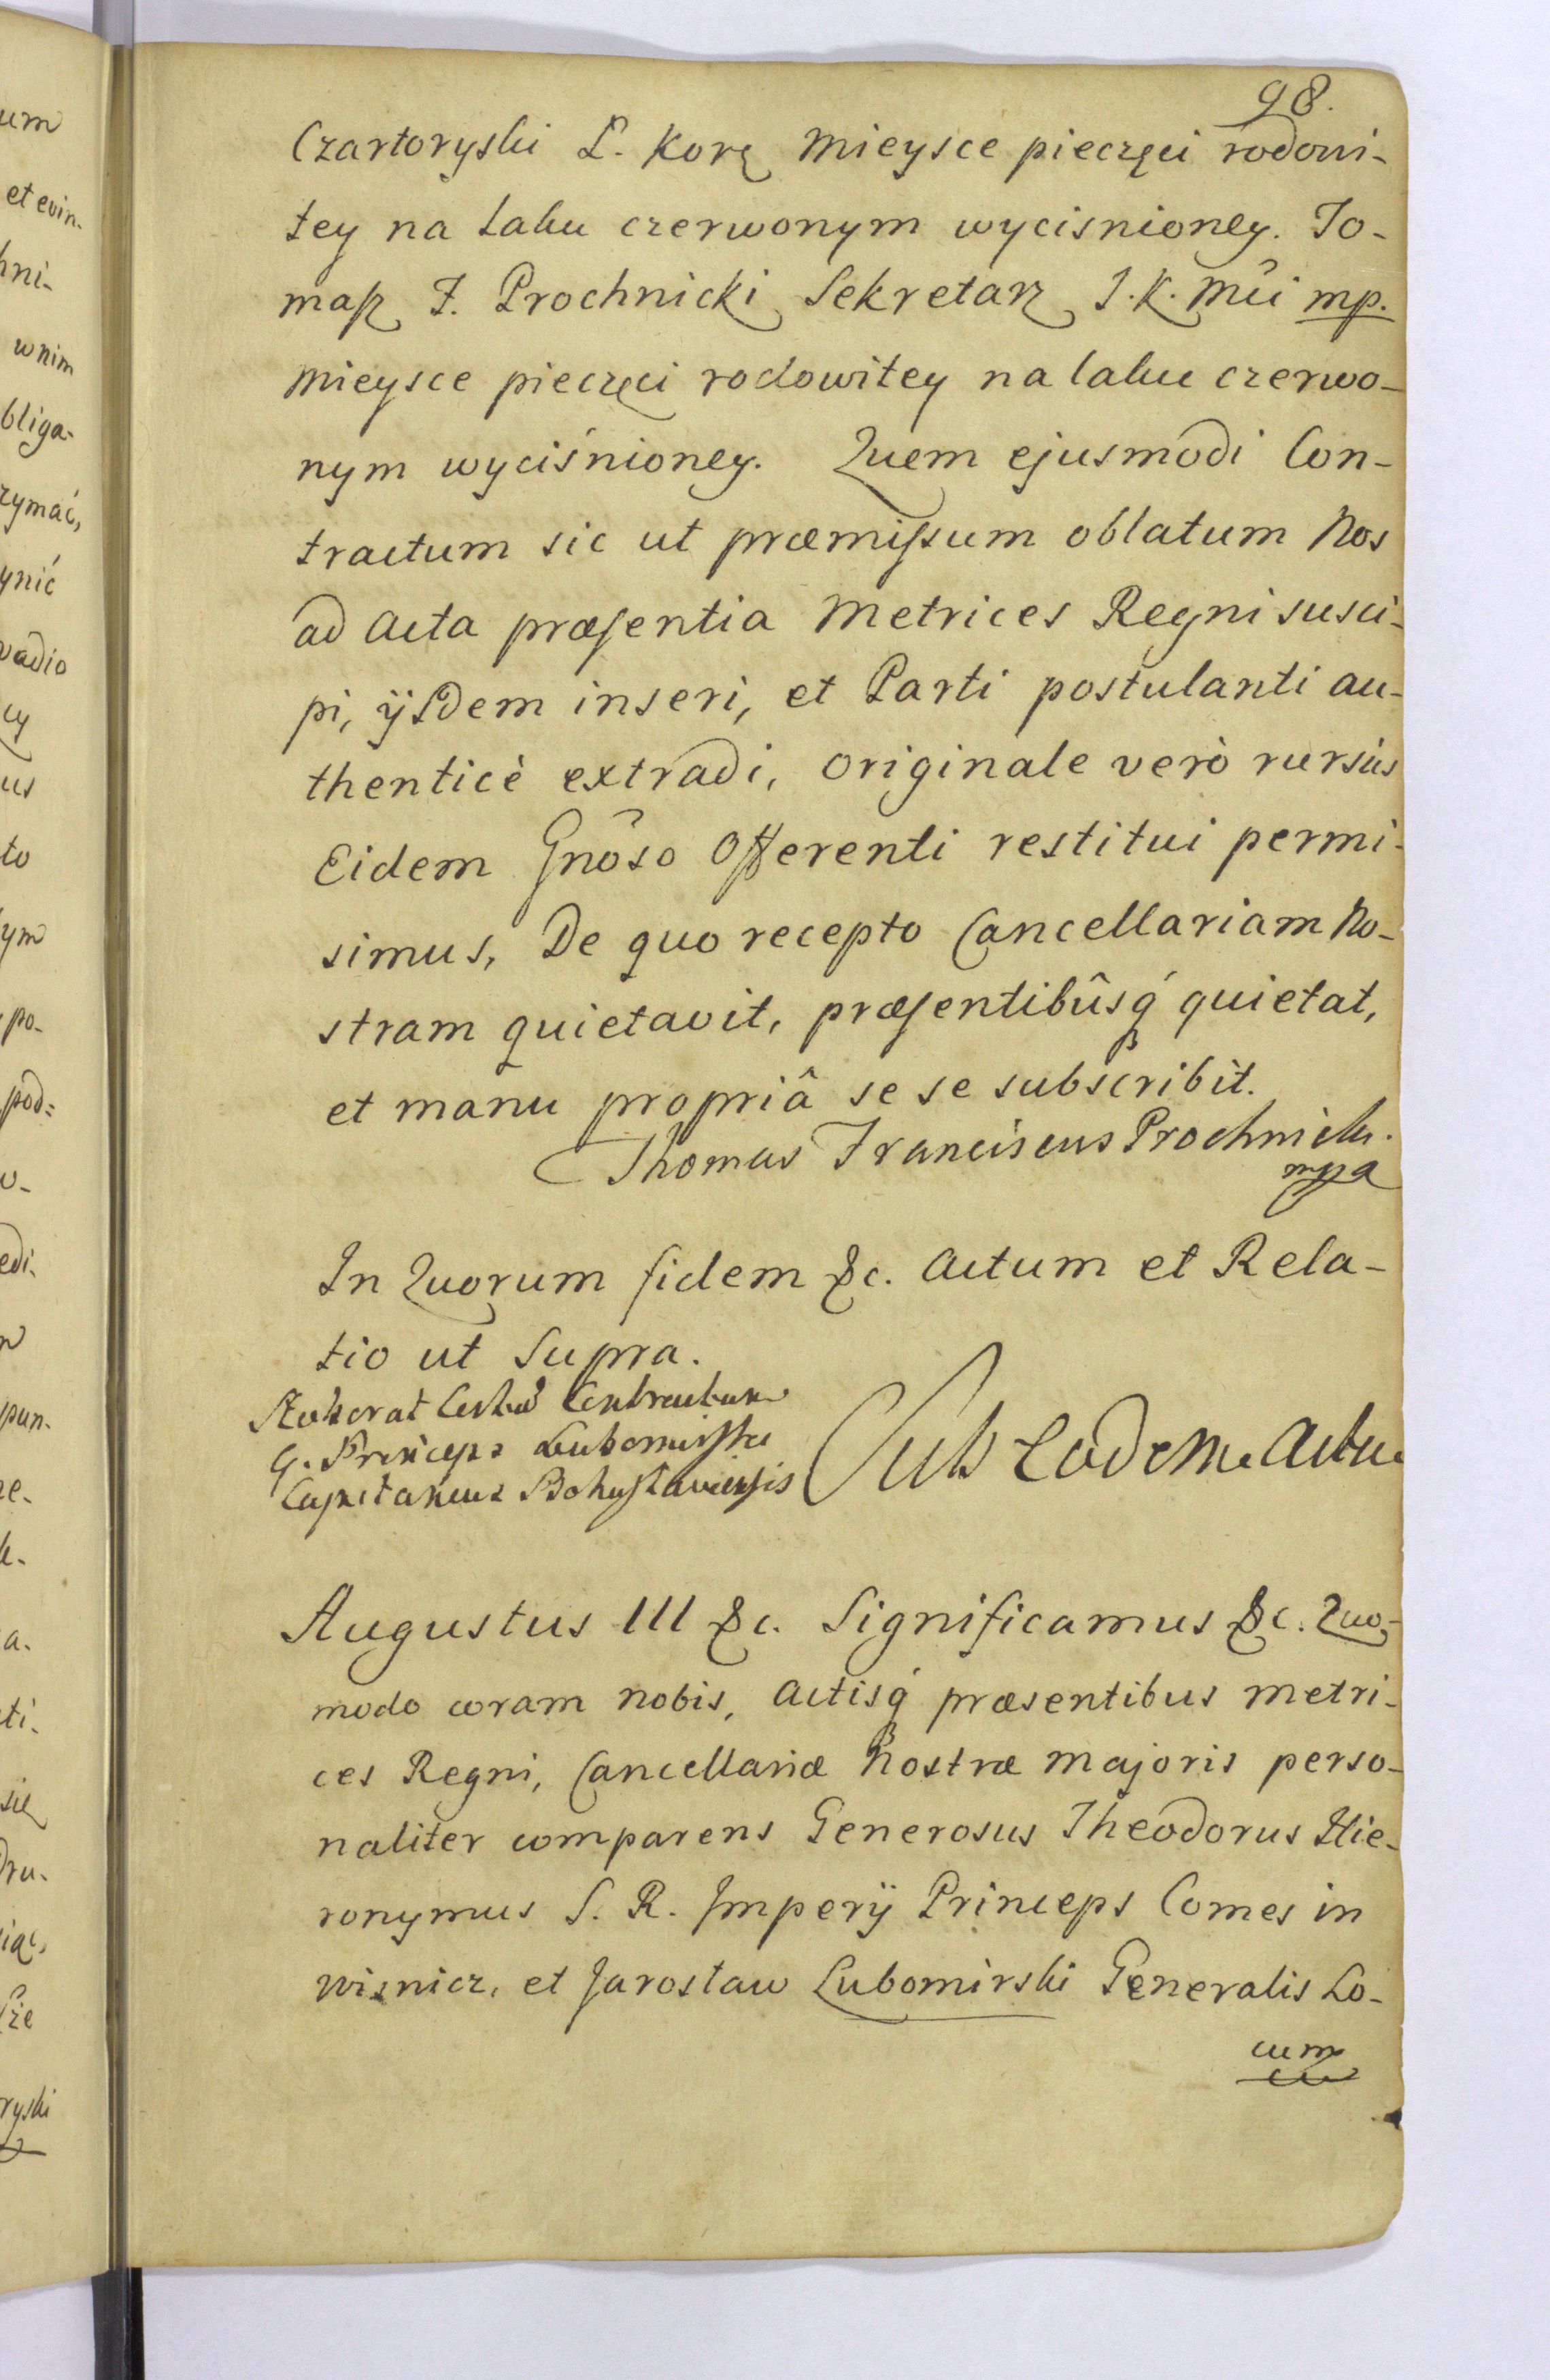 98.
Czartoryski L. Korę Mieysce pieczęci rodowi-
tey na laku czerwonym wycisnioney. To-
masz F. Prochnicki Sekretarz J. K. Mci mp.
Mieysce pieczęci rodowitey na laku czerwo-
nym wyciśnioney. Quem ejusmodi Con-
tractum sic ut præmissum oblatum Nos
ad Acta præsentia Metrices Regni susci-
pi, ijsdem inseri, et Parti postulanti au-
thenticè extradi, Originale verò rursùs
Eidem Gnôso Offerenti restitui permi-
simus, De quo recepto Cancellariam No-
stram quietavit, præsentibûsq́ quietat,
et manu propriâ se se subscribit.
Thomas Franciscus Prochnicki.
mppa
In Quorum fidem &c. Actum et Rela-
tio ut Supra.
Contractum
G. Princeps Lubomirski
Capitaneus Bohuslaviensis
Sub Eodem Actu
Augustus III &c. Significamus &c. Quo-
modo coram nobis, Actisq́ præsentibus metri-
ces Regni, Cancellariæ Nostræ Majoris perso-
naliter comparens Generosus Theodorus Hie-
ronymus S. R. Imperij Princeps Comes in
Wisnicz, et Jarosław Lubomirski Generalis Lo-
cum
um
et evin-
hni-
wnim
bliga-
rzymać,
ynić
vadio
cy
us
to
ym
po-
pod=
edi.
pun-
a.
ti-
się
dru-
ryski